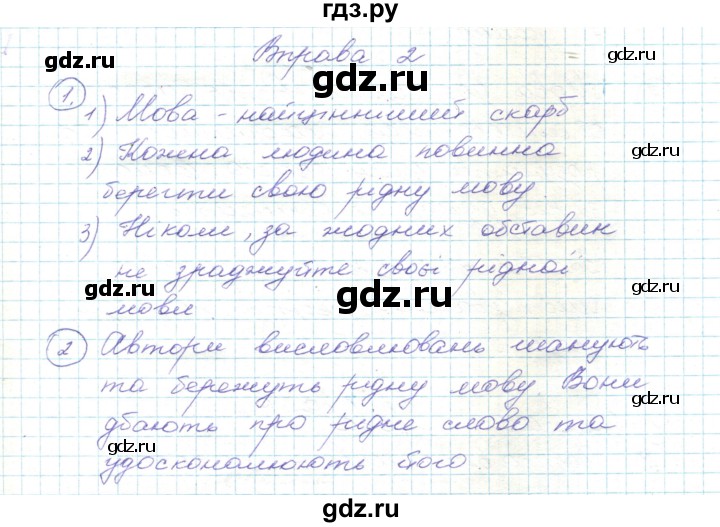 гдз.ру
Вправа 2
1. 1) Мова - найцінніший скарб
2) Кожна людина повинна
берегти свою рідну мову.
3) Ніколи, за жодних обставин
не зраджуйте своєї рідної
мови
2 Автори висловлювань шанують
та бережуть рідну мову. Вони
дбають про рідне слово та
удосконалюють його
gdz.ru
gdz.ru
gdz.ru
gdz.ru
gdz.ru
gdz.ru
gdz.ru
gdz.ru
gdz.ru
gdz.ru
gdz.ru
gdz.ru